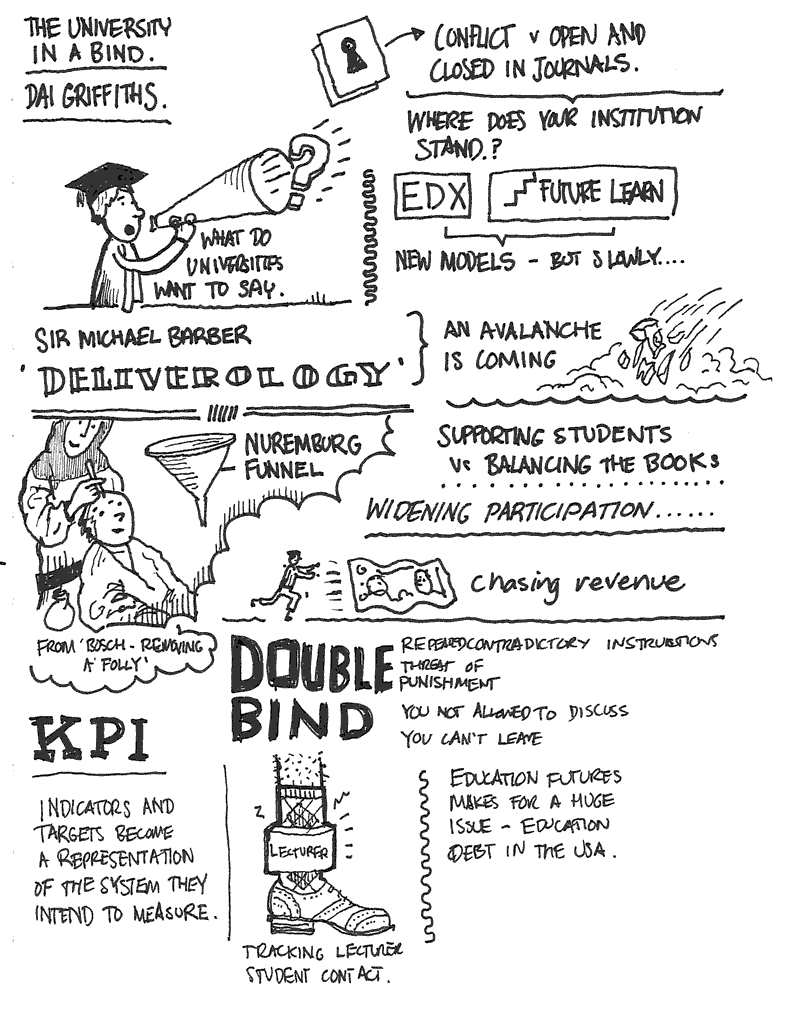 THE UNIVERSITY
IN A BIND.
DAI GRIFFITHS.
CONFLICT v OPEN AND
CLOSED IN JOURNALS.
WHERE DOES YOUR INSTITUTION
STAND.?
EDX
FUTURE LEARN
NEW MODELS - BUT SLOWLY....
?
WHAT DO
UNIVERSITIES
WANT TO SAY.
SIR MICHAEL BARBER
'DELIVEROLOGY'
AN AVALANCHE
IS COMING
NUREMBURG
FUNNEL
SUPPORTING STUDENTS
VS BALANCING THE BOOKS
WIDENING PARTICIPATION......
chasing revenue
FROM 'BOSCH - REMOVING
A' FOLLY'
DOUBLE
BIND
CONTRADICTORY INSTRUCTIONS
THREAT OF
PUNISHMENT
YOU NOT ALLOWED TO DISCUSS
YOU CAN'T LEAVE
KPI
INDICATORS AND
TARGETS BECOME
A REPRESENTATION
OF THE SYSTEM THEY
INTEND TO MEASURE.
LECTURER
TRACKING LECTURER
STUDENT CONTACT.
EDUCATION FUTURES
MAKES FOR A HUGE
ISSUE - EDUCATION
DEBT IN THE USA.